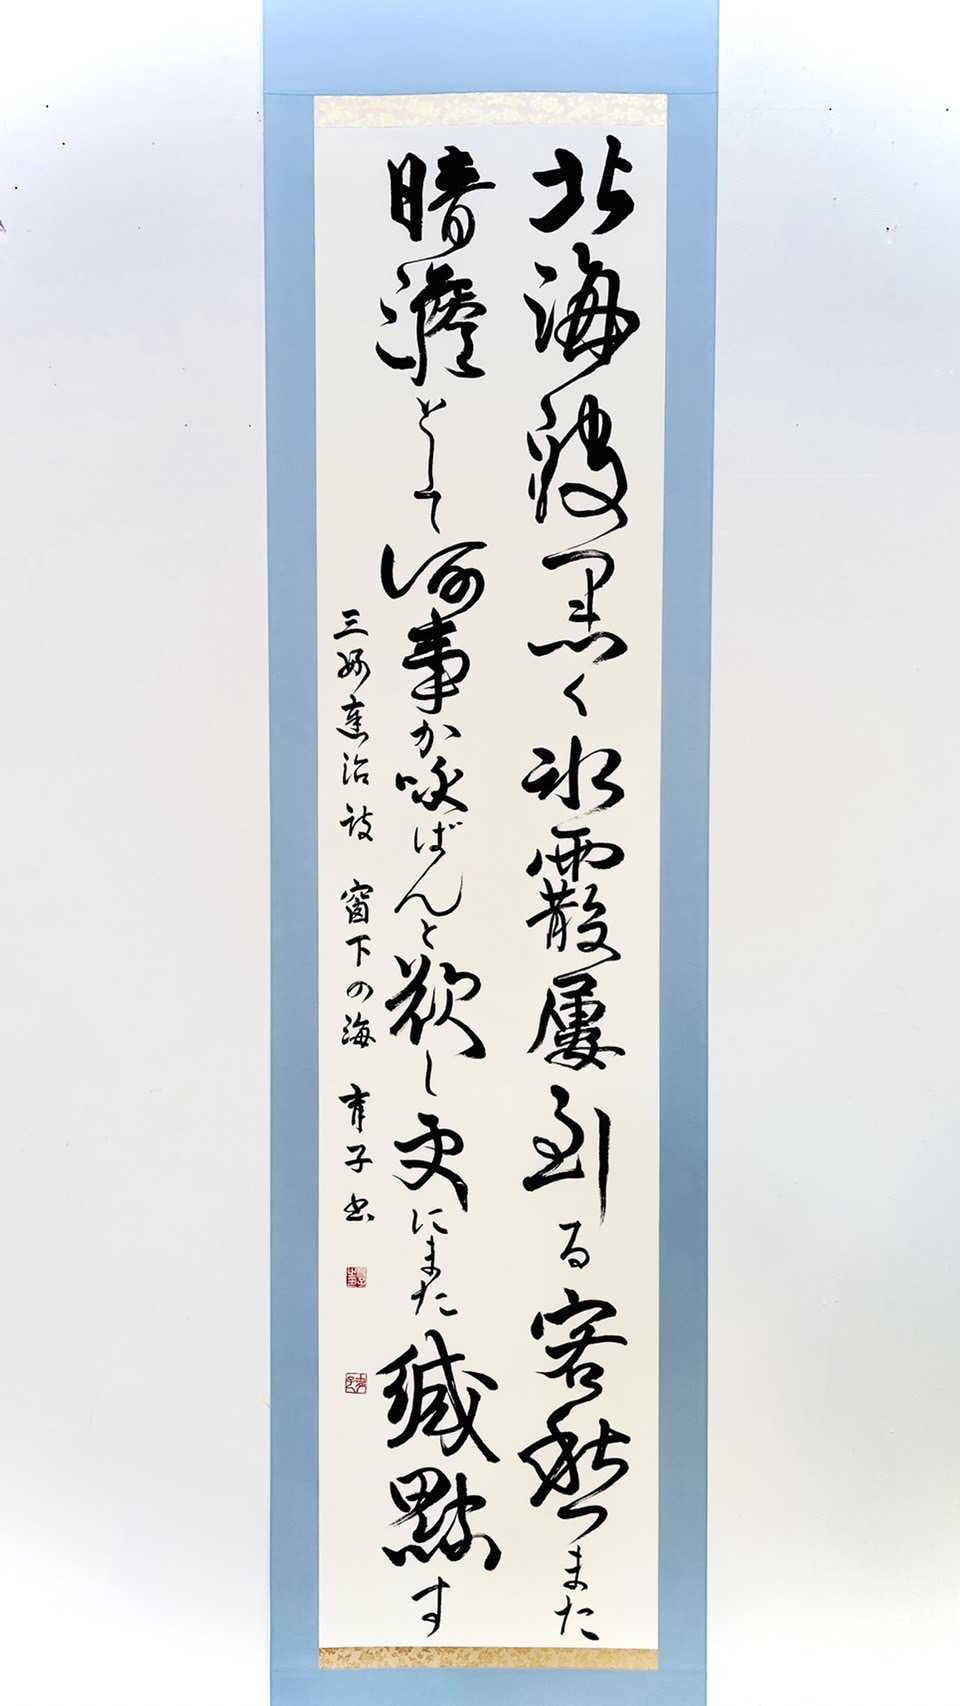 北海波黒く氷霰屢到る客愁また
暗澹として何事か咏ばんと欲し更にまた緘黙す
三好達治詩 窗下の海 育子書